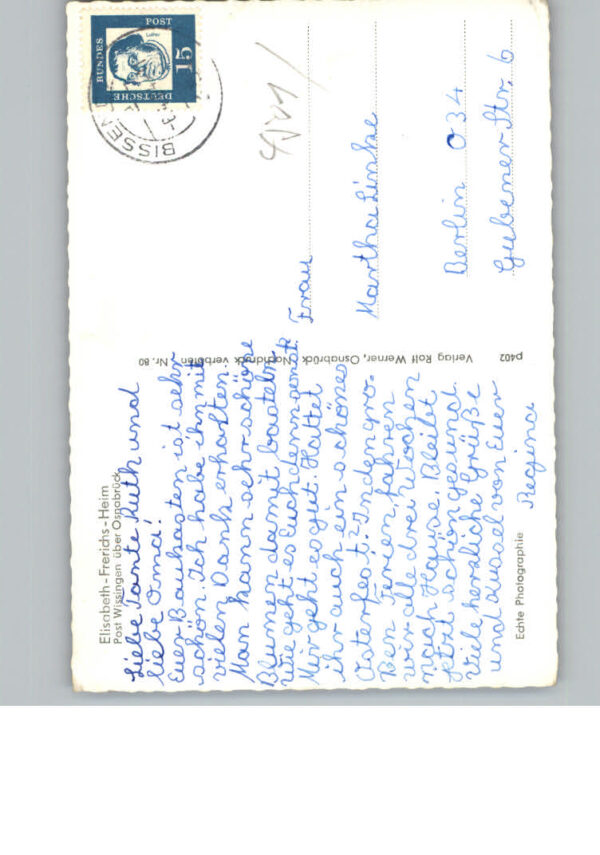 Elisabeth-Frerichs-Heim
Post Wissingen über Osnabrück
Liebe Tante Ruth und
liebe Oma!
Euer Baukasten ist sehr
schön. Ich habe ihn mit
vielen Dank erhalten.
Man kann sehr schöne
Blumen damit basteln
Wie geht es Euch denn
Mir geht es gut. Hattet
ihr auch ein schönes
Osterfest? In den gro.
ßen Ferien fahren
wir alle drei Wochen
nach Hause. Bleibt
jetzt schön gesund.
Viele herzliche Grüße
und Küssel von Euer
Regina
Echte Photographie
Verlag Rolf Werner, Osnabrück Nachdruck verboten Nr. 80
p402
DEUTSCHE
BUNDES
POST
Luther
15
BISSEN
Frau
Martha Linke
Berlin O34
Gubener Str. 6